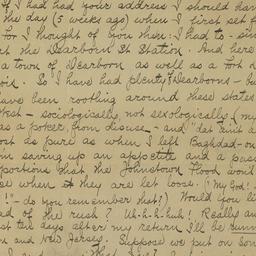 if I had had your address I should hav
the day (5 weeks ago) when I first set f
for I thought of you then: I had to - sin
at the Dearborn St Station. And here
a town of Dearborn as well as a Fort o
So I have had plenty Dearborn - bu
have been rooting around these states
West - sociologically, not sexologically (my
as a poker, from disuse - and "dat ain't a
ost as pure as when I left Baghdad-on
'm saving up an appetite and a pass
portions that the Johnstown Flood won't
se when they are let loose. ("My God!
!" - do you remember that?) Would you li
ad of the rush? Uh-h-h-huh! Really an
st ten days after my return I'll be runni
n and New Jersey. Suppose we put on som